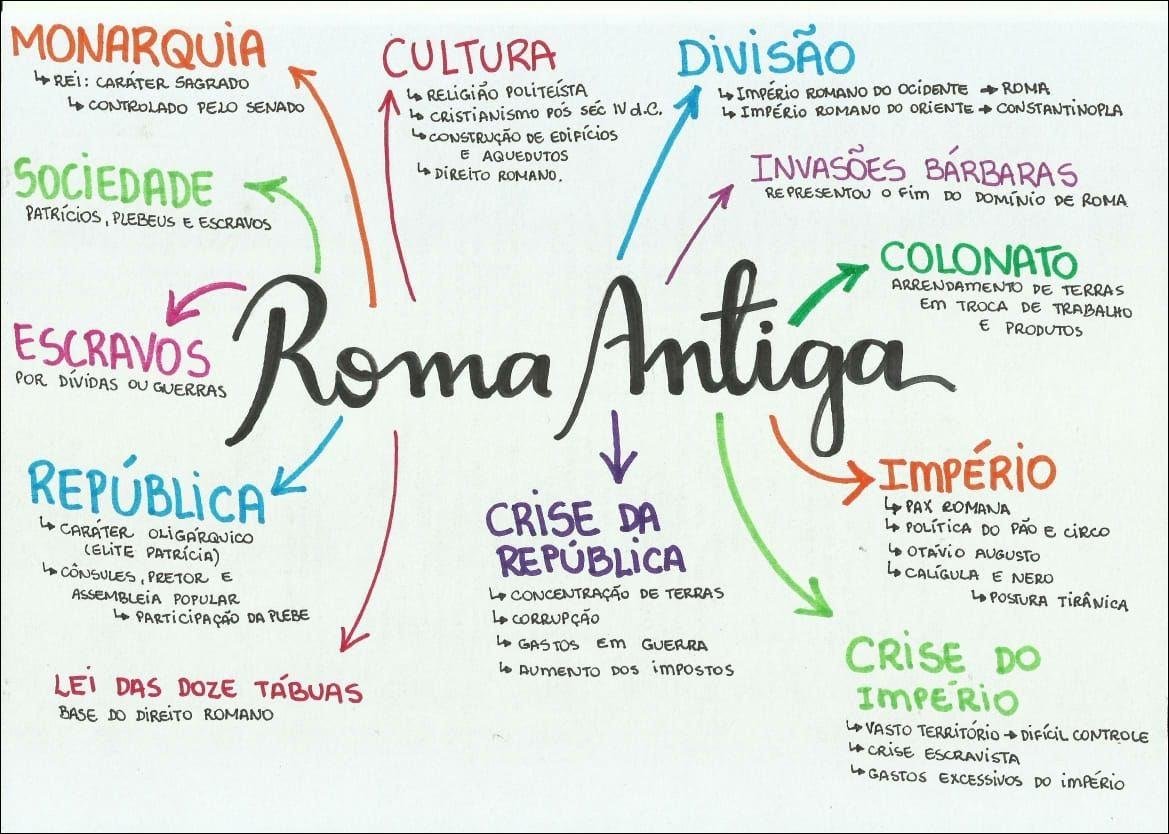 MONARQUIA
↳ REI: CARÁTER SAGRADO
↳ CONTROLADO PELO SENADO
CULTURA
↳ RELIGIÃO POLITEÍSTA
↳ CRISTIANISMO PÓS SÉC IV d.C.
↳ CONSTRUÇÃO DE EDIFÍCIOS
E AQUEDUTOS
↳ DIREITO ROMANO.
DIVISÃO
↳ IMPÉRIO ROMANO DO OCIDENTE → ROMA
↳ IMPÉRIO ROMANO DO ORIENTE → CONSTANTINOPLA
INVASÕES BÁRBARAS
REPRESENTOU O FIM DO DOMÍNIO DE ROMA
SOCIEDADE
PATRÍCIOS, PLEBEUS E ESCRAVOS
COLONATO
ARRENDAMENTO DE TERRAS
EM TROCA DE TRABALHO
E PRODUTOS
ESCRAVOS
POR DÍVIDAS OU GUERRAS
Roma Antiga
REPÚBLICA
↳ CARÁTER OLIGÁRQUICO
(ELITE PATRÍCIA)
↳ CÔNSULES, PRETOR E
ASSEMBLEIA POPULAR
↳ PARTICIPAÇÃO DA PLEBE
LEI DAS DOZE TÁBUAS
BASE DO DIREITO ROMANO
CRISE DA
REPÚBLICA
↳ CONCENTRAÇÃO DE TERRAS
↳ CORRUPÇÃO
↳ GASTOS EM GUERRA
↳ AUMENTO DOS IMPOSTOS
IMPÉRIO
↳ PAX ROMANA
↳ POLÍTICA DO PÃO E CIRCO
↳ OTÁVIO AUGUSTO
↳ CALÍGULA E NERO
↳ POSTURA TIRÂNICA
CRISE DO
IMPÉRIO
↳ VASTO TERRITÓRIO → DIFÍCIL CONTROLE
↳ CRISE ESCRAVISTA
↳ GASTOS EXCESSIVOS DO IMPÉRIO